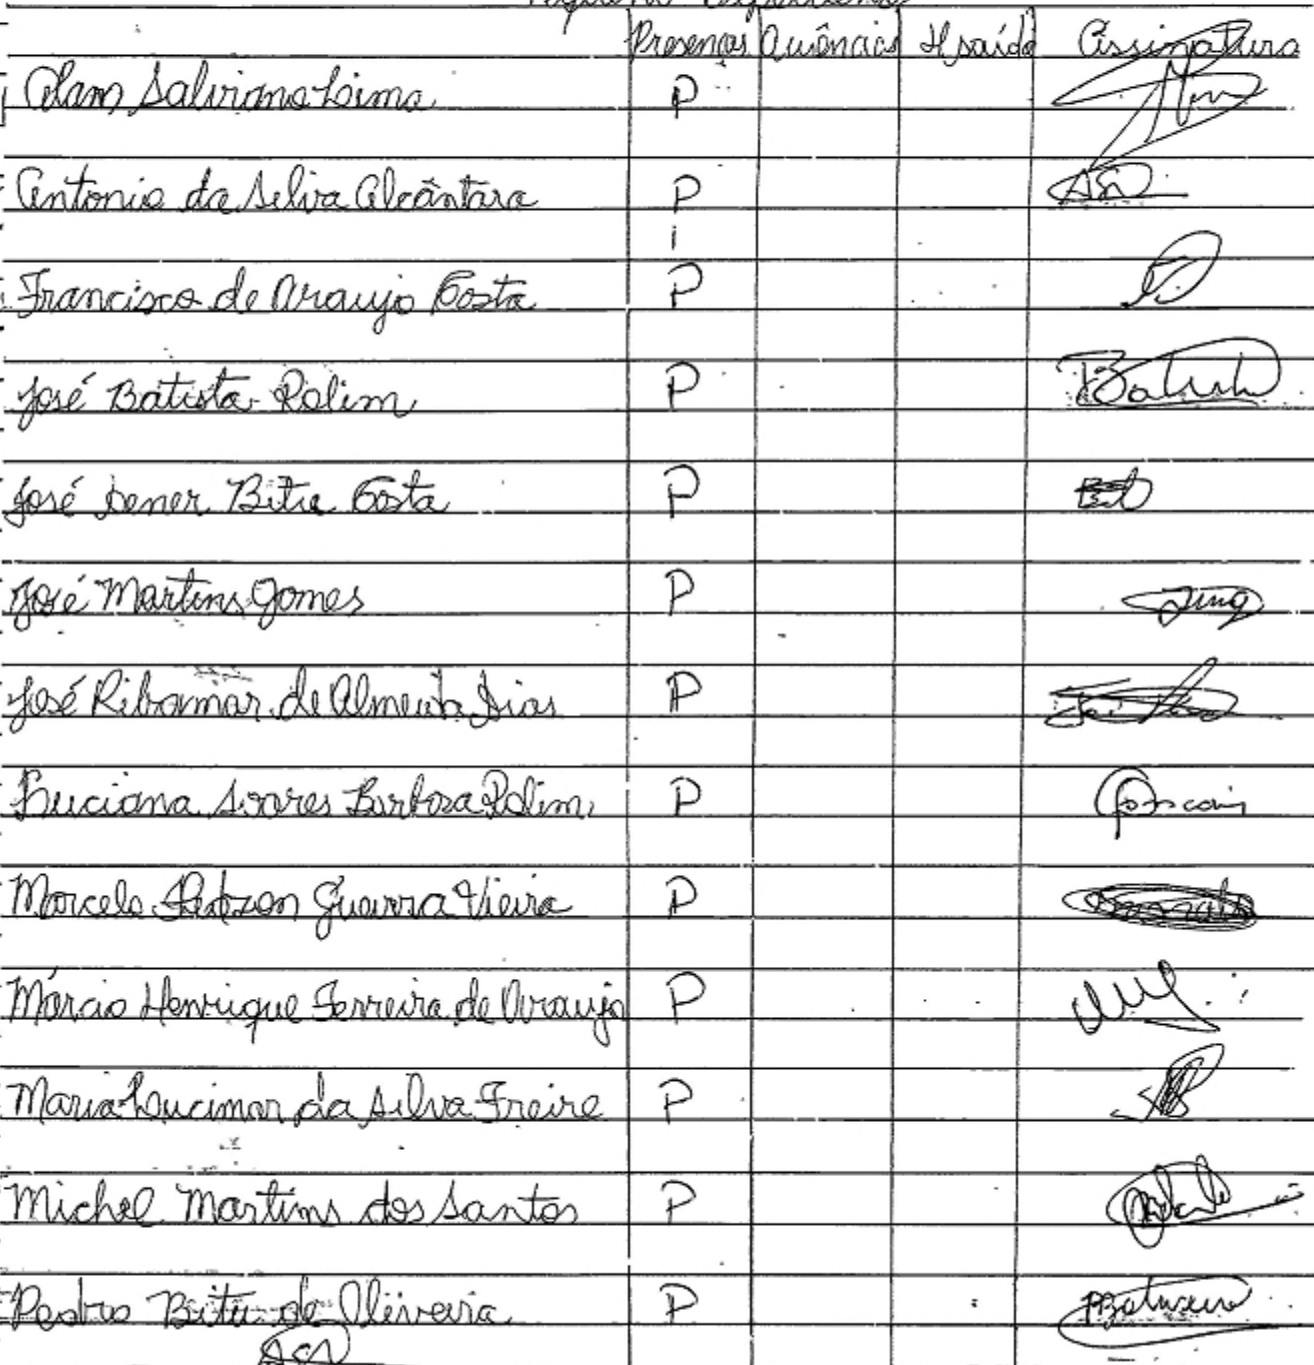 Presenças Ausências H saída Assinatura
Alam Salviano Lima P
Antonio da Selva Alcântara P
Francisco de Araujo Costa P
José Batista Rolim P Batista
José Dener Bitu Costa P
José Martins Gomes P
José Ribamar de Almeida Dias P
Luciana Soares Barbosa Rolim P
Marcelo Guerra Vieira P
Márcio Henrique Ferreira de Araujo P
Maria Lucimar da Silva Freire P
Michel Martins dos Santos P
Pedro Bitu de Oliveira P